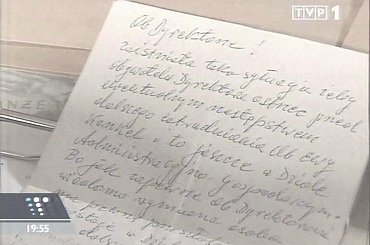 TVP 1
Ob Dyrektorze!
zaistniała taka sytuacja żeby
obywatela Dyrektora ostrzec przed
ewentualnym następstwem
dalszego zatrudniania Ob Ewy
to jeszcze w Dziale
Administracyjno gospodarczym.
Bo jak zapewne Ob Dyrektorowi
wiadomo wymieniona osoba
NZE
19:55